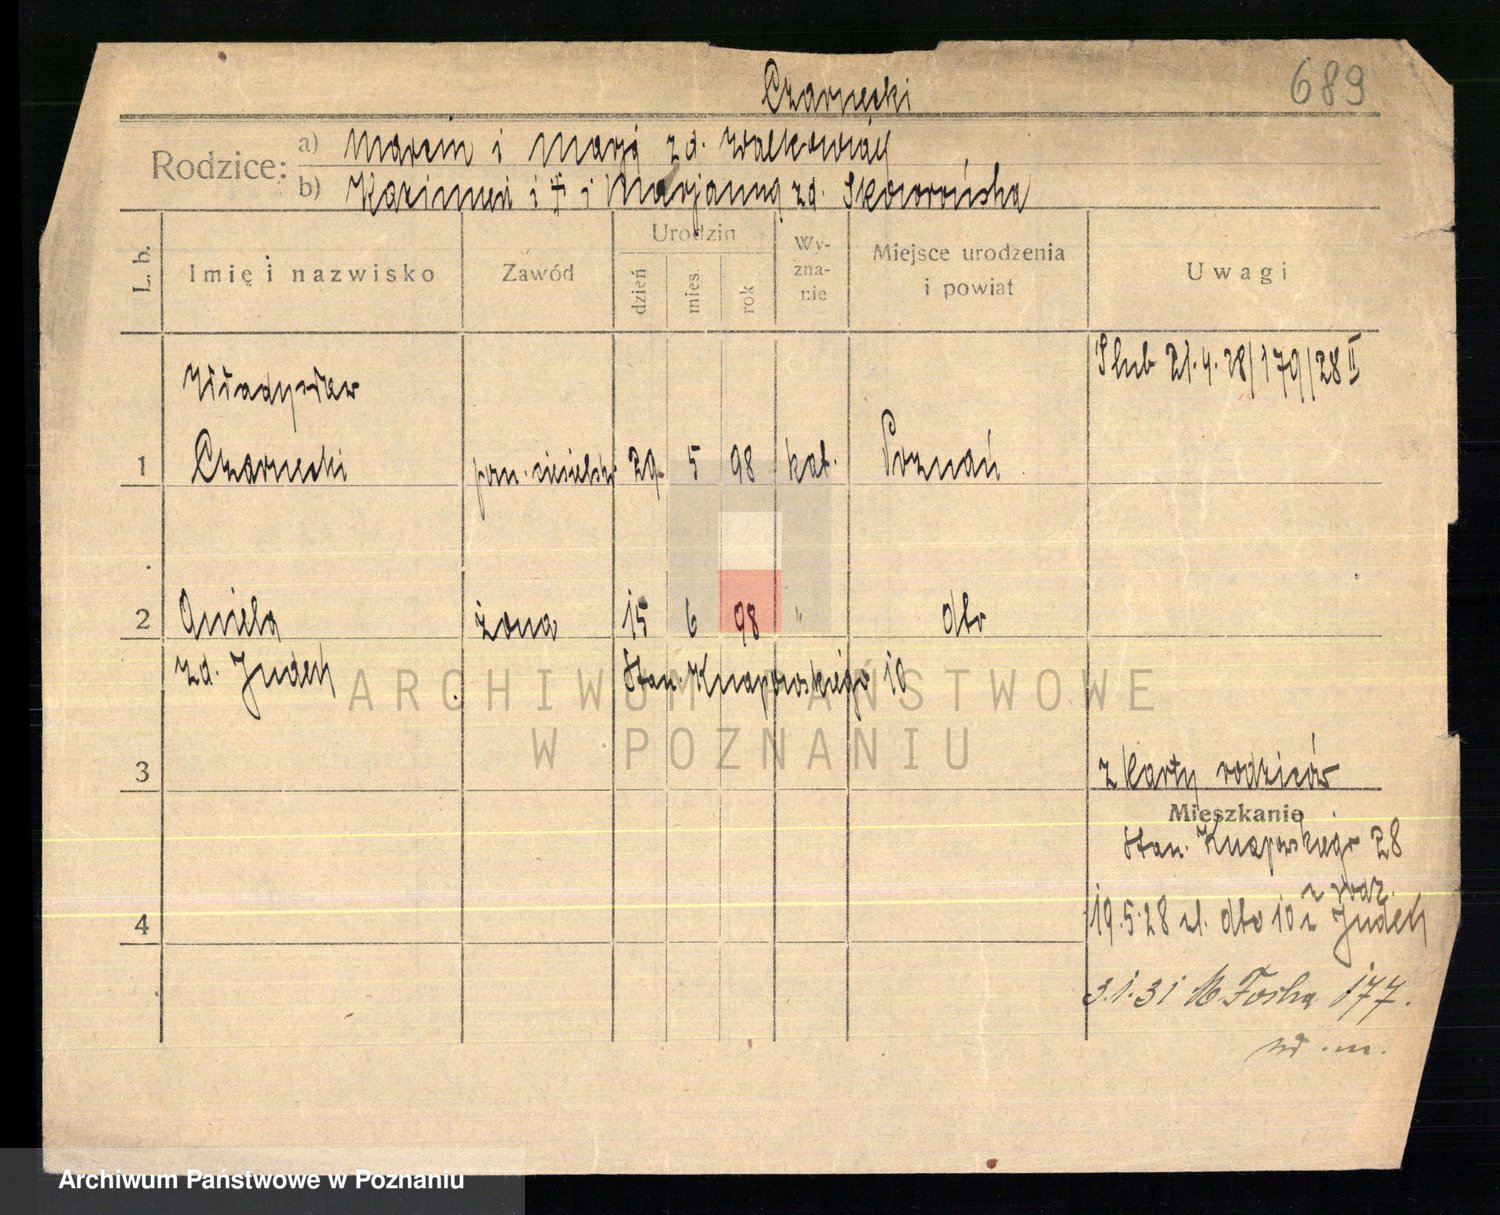 Czarnecki
689
Rodzice:
a) Marcin i Marja zd. Walkowiak
b) Kazimierz i † i Marjanna zd. Skowrońska
L. b.
Imię i nazwisko
Zawód
Urodzin
dzień
mies.
rok
Wy-
zna-
nie
Miejsce urodzenia
i powiat
Uwagi
Ślub 21.4.28/179/28 II
Władysław
1 Czarnecki pom. ciesielski 29. 5 98 kat. Poznań
2 Aniela żona 15 6 98 " dto
zd. Judek Stan. Knapowskiego 10
ARCHIWUM PAŃSTWOWE
W POZNANIU
3
z karty rodziców
Mieszkanie
Stan. Knapowskiego 28
z rodz.
19.5.28 ul. dto 10 z Judek
4
3.1.31 M. Focha 177.
Archiwum Państwowe w Poznaniu